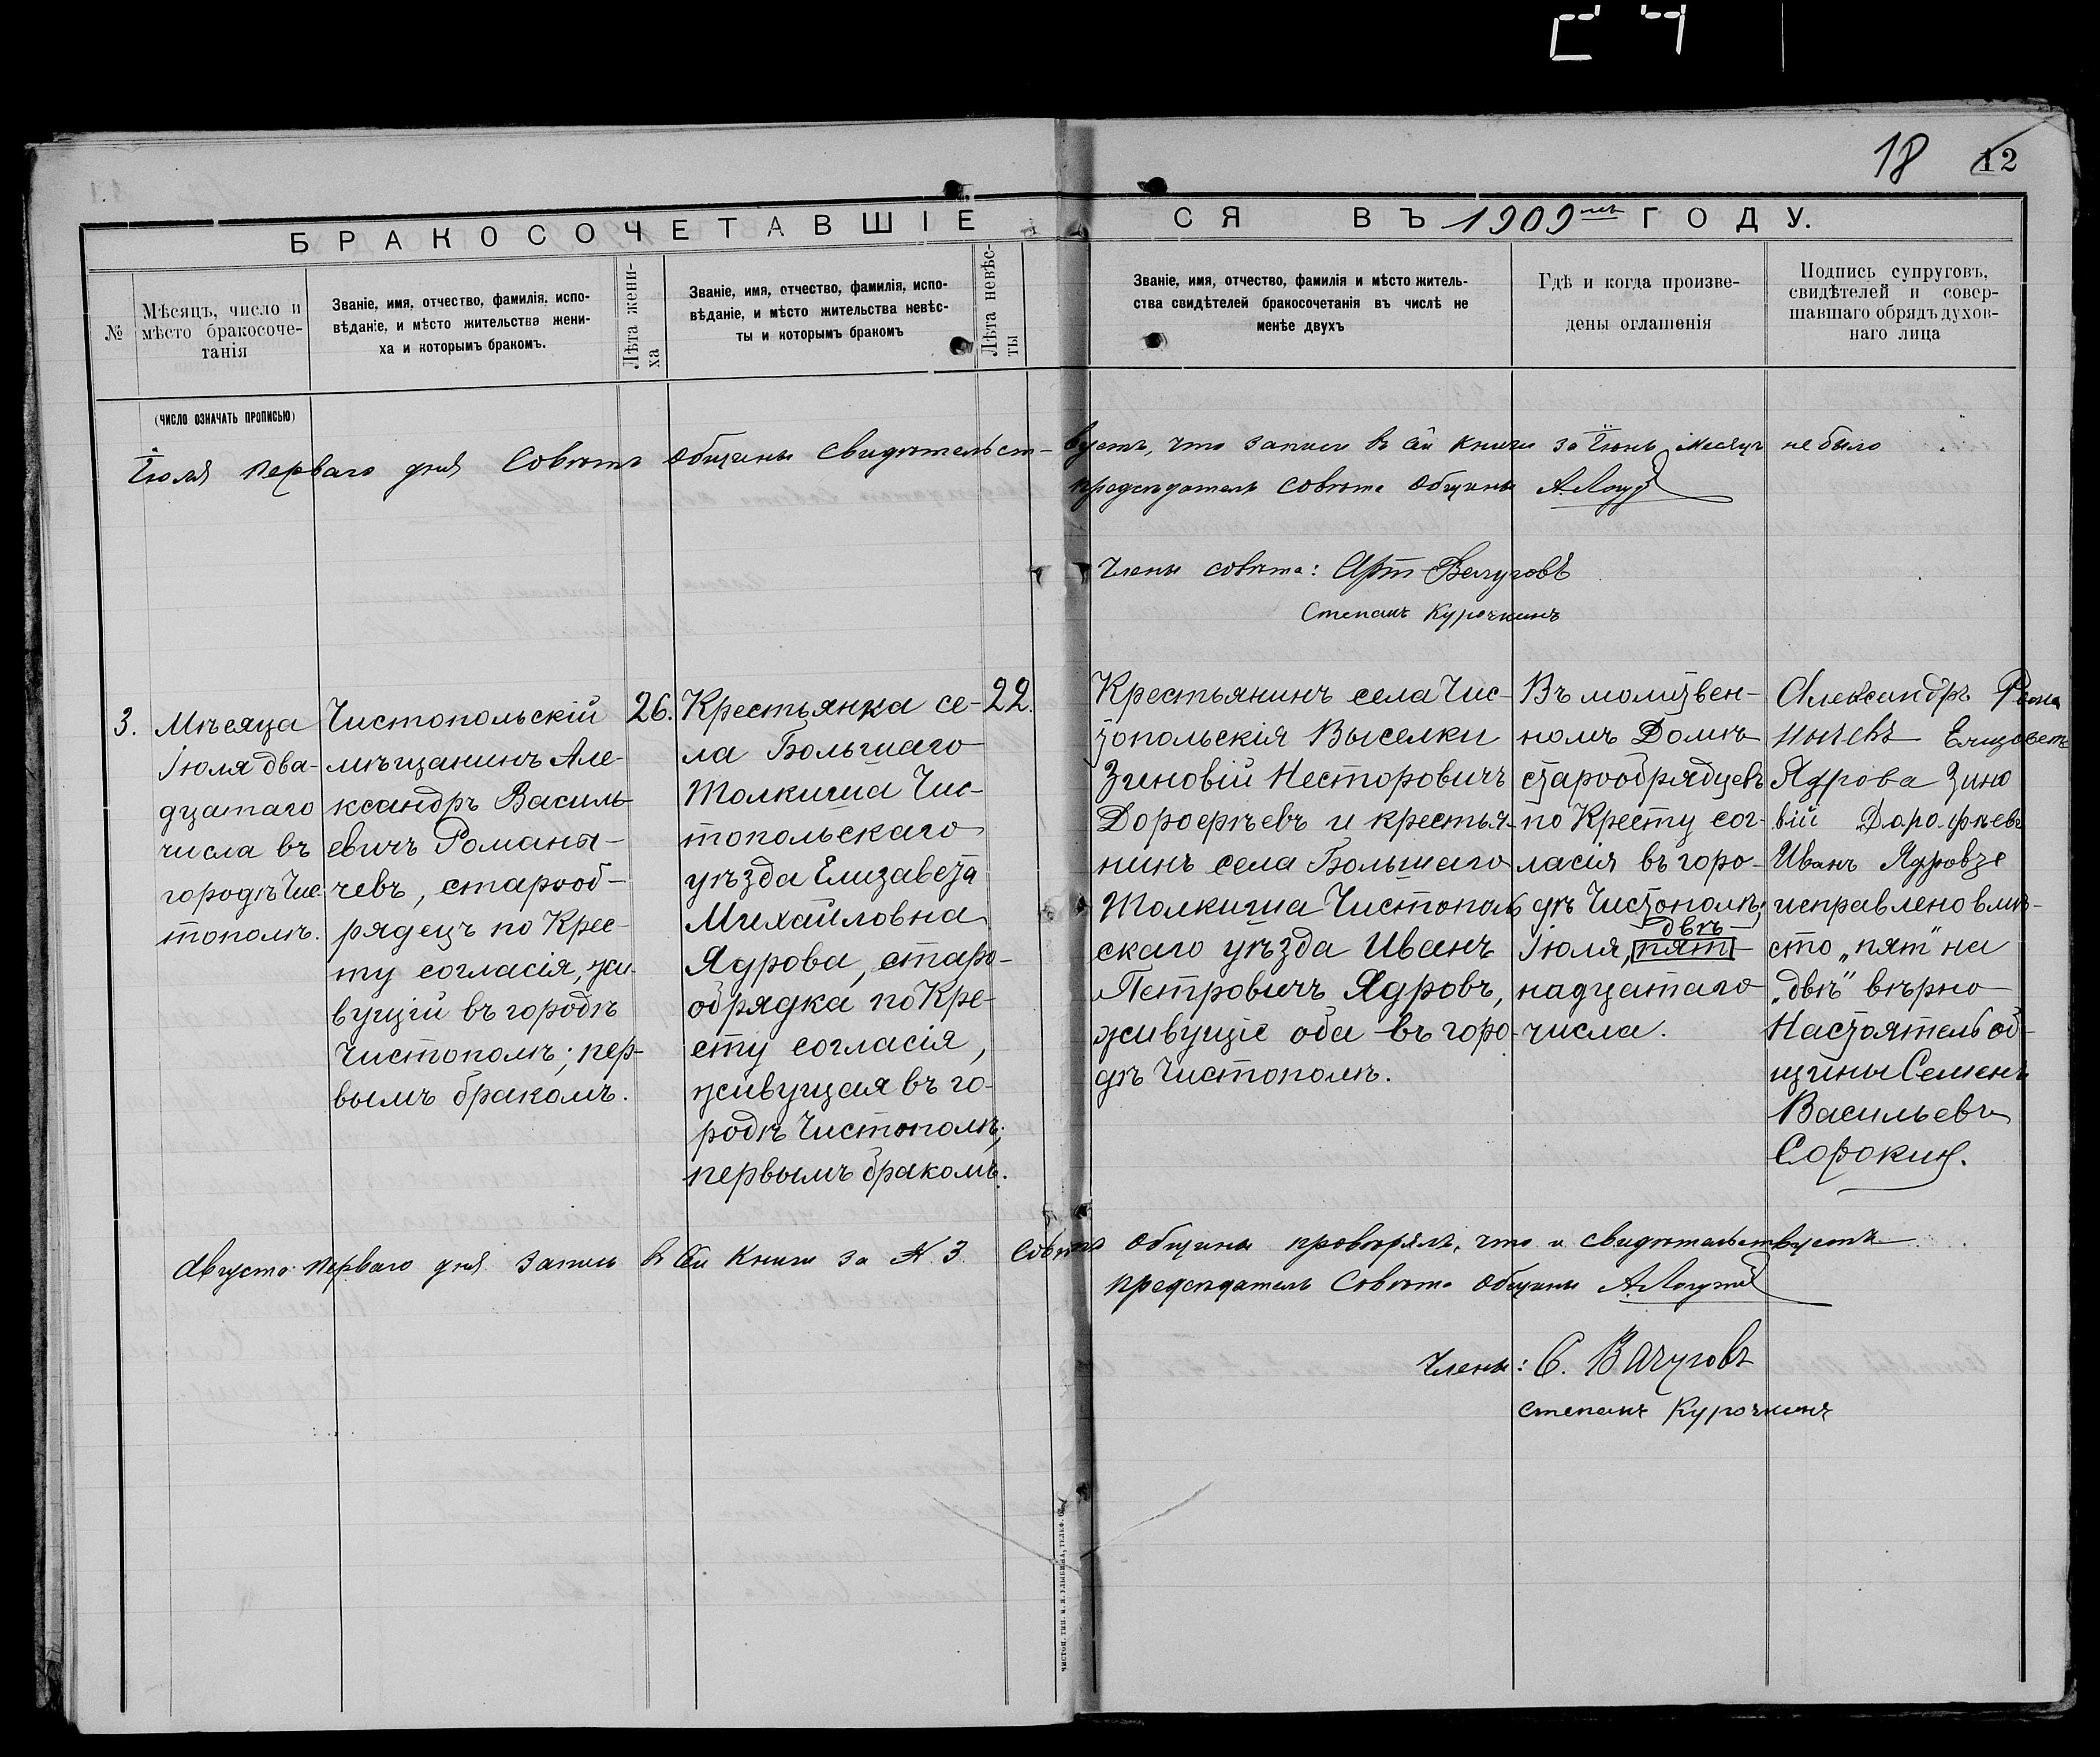 18 12
БРАКОСОЧЕТАВШІЕСЯ ВЪ 1909 мъ ГОДУ.
№
Мѣсяцъ, число и
мѣсто бракосоче-
танія
Званіе, имя, отчество, фамилія, испо-
вѣданіе, и мѣсто жительства жени-
ха и которымъ бракомъ.
Лѣта жени-
ха
Званіе, имя, отчество, фамилія, испо-
вѣданіе, и мѣсто жительства невѣс-
ты и которымъ бракомъ
Лѣта невѣс-
ты
Званіе, имя, отчество, фамилія и мѣсто житель-
ства свидѣтелей бракосочетанія въ числѣ не
менѣе двухъ
Гдѣ и когда произве-
дены оглашенія
Подпись супруговъ,
свидѣтелей и совер-
шавшаго обрядъ духов-
наго лица
(ЧИСЛО ОЗНАЧАТЬ ПРОПИСЬЮ)
Іюля перваго дня Совѣтъ общины свидѣтельст-вуетъ, что записи въ сей книги за Іюнь месяцъ не было
предсѣдатель совѣта общины
Члены совѣта: Арт
Степанъ Курочкинъ
3.
Мѣсяца
Іюля два-
дцатаго
числа въ
городѣ Чис-
тополѣ.
Чистопольскій
мѣщанинъ Але-
ксандръ Василь-
евичъ Романы-
чевъ, старооб-
рядецъ по Крес-
ту согласія, жи-
вущій въ городѣ
Чистополѣ; пер-
вымъ бракомъ.
26.
Крестьянка се-
ла Большаго
Толкиша Чис-
топольскаго
уѣзда Елизавета
Михайловна
Ядрова, старо-
обрядка по Кре-
сту согласія,
живущая въ го-
родѣ Чистополѣ;
первымъ бракомъ.
22.
Крестьянинъ села Чис-
топольскія Выселки
Зиновій Несторовичъ
Дорофѣевъ и крестья-
нинъ села Большаго
Толкиша Чистополь
скаго уѣзда Иванъ
Петровичъ Ядровъ,
живущіе оба въ горо-
дѣ Чистополѣ.
Въ молитвен-
номъ Домѣ
старообрядцевъ
по Кресту сог-
ласія въ горо-
дѣ Чистополѣ;
двѣ
Іюля, пят-
надцатаго
числа.
Александръ Рома
нычевъ Елизовета
Ядрова Зино
вій Дорофѣевъ
Иванъ Ядровъ
исправлено вмѣ-
сто „пят" на
„двѣ" вѣрно
Настоятель об-
щины Семенъ
Васильевъ
Сорокин.
Августа перваго дня запись въ сей книги за № 3. Совѣтъ общины провѣрялъ, что и свидѣтельствуетъ
предсѣдатель Совѣта общины
Члены: С. Вачуговъ
Степанъ Курочкинъ